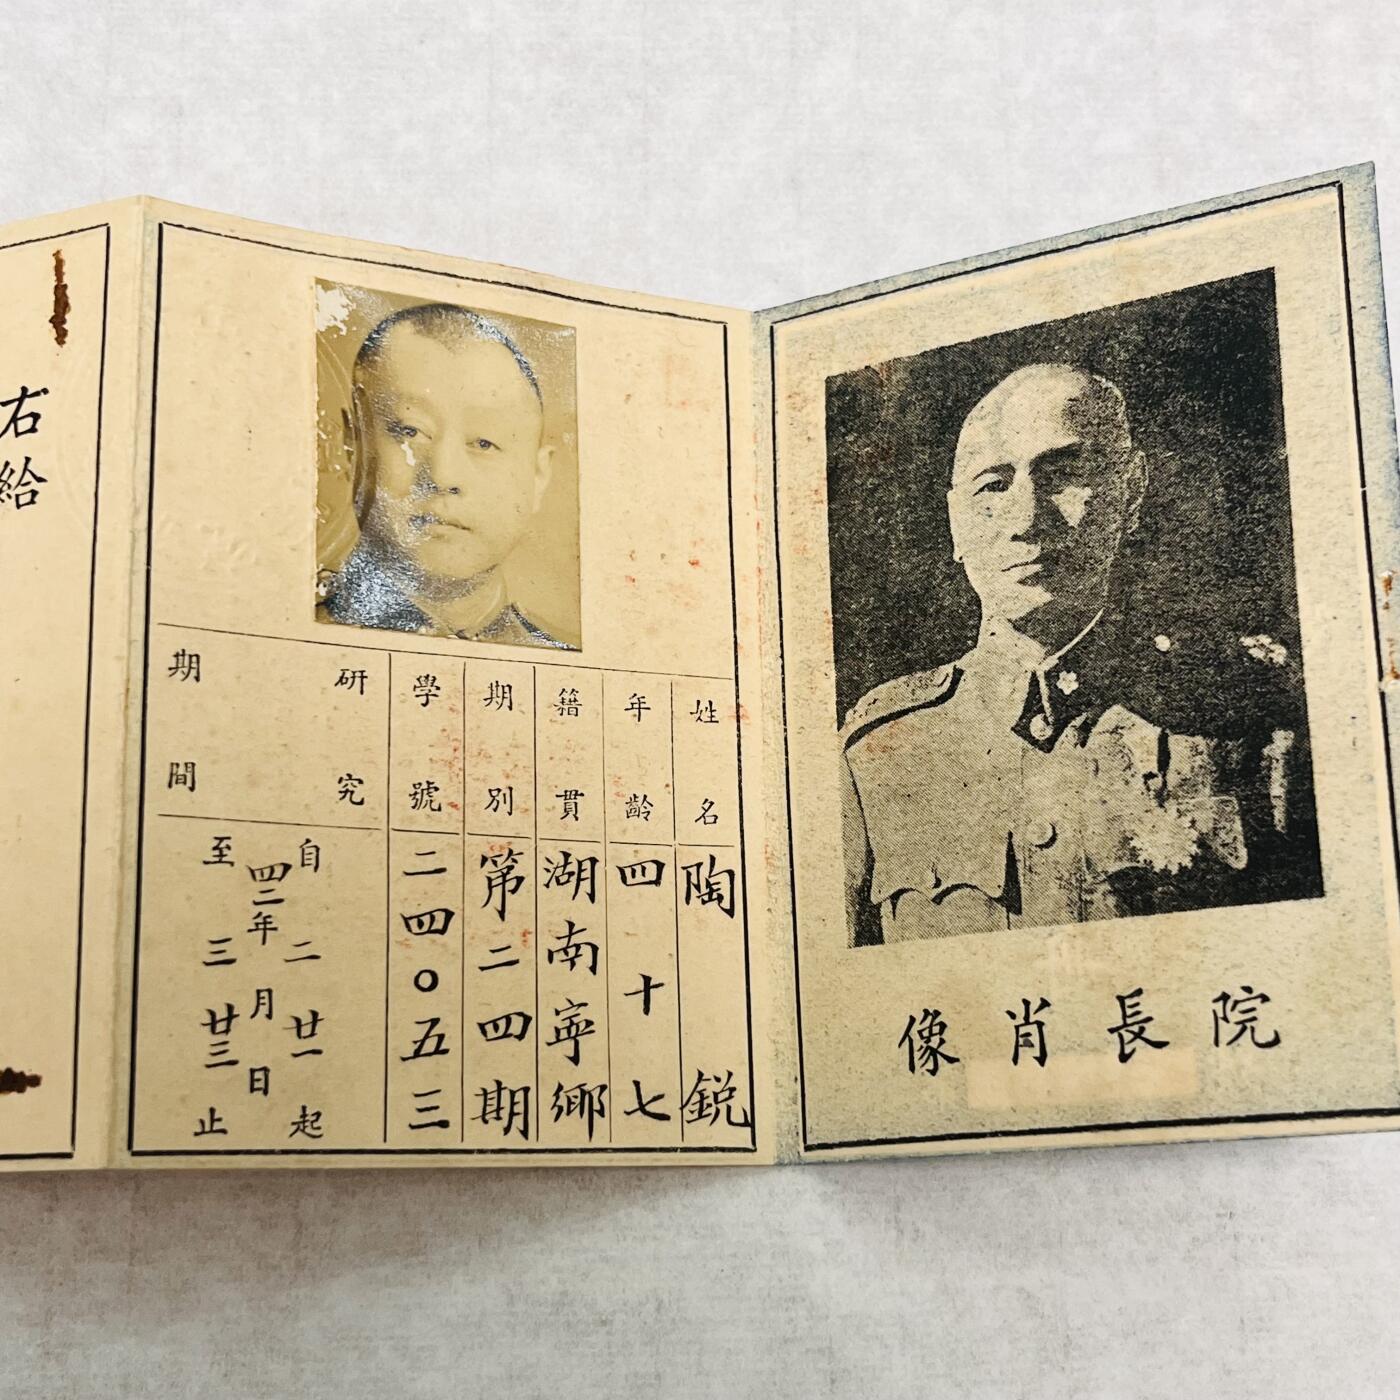 院長肖像
姓名 陶銳
年齡 四十七
籍貫 湖南寧鄉
期別 第二四期
學號 二四〇五三
研究期間
自二廿一起
四二年月日
至三廿三止
右給